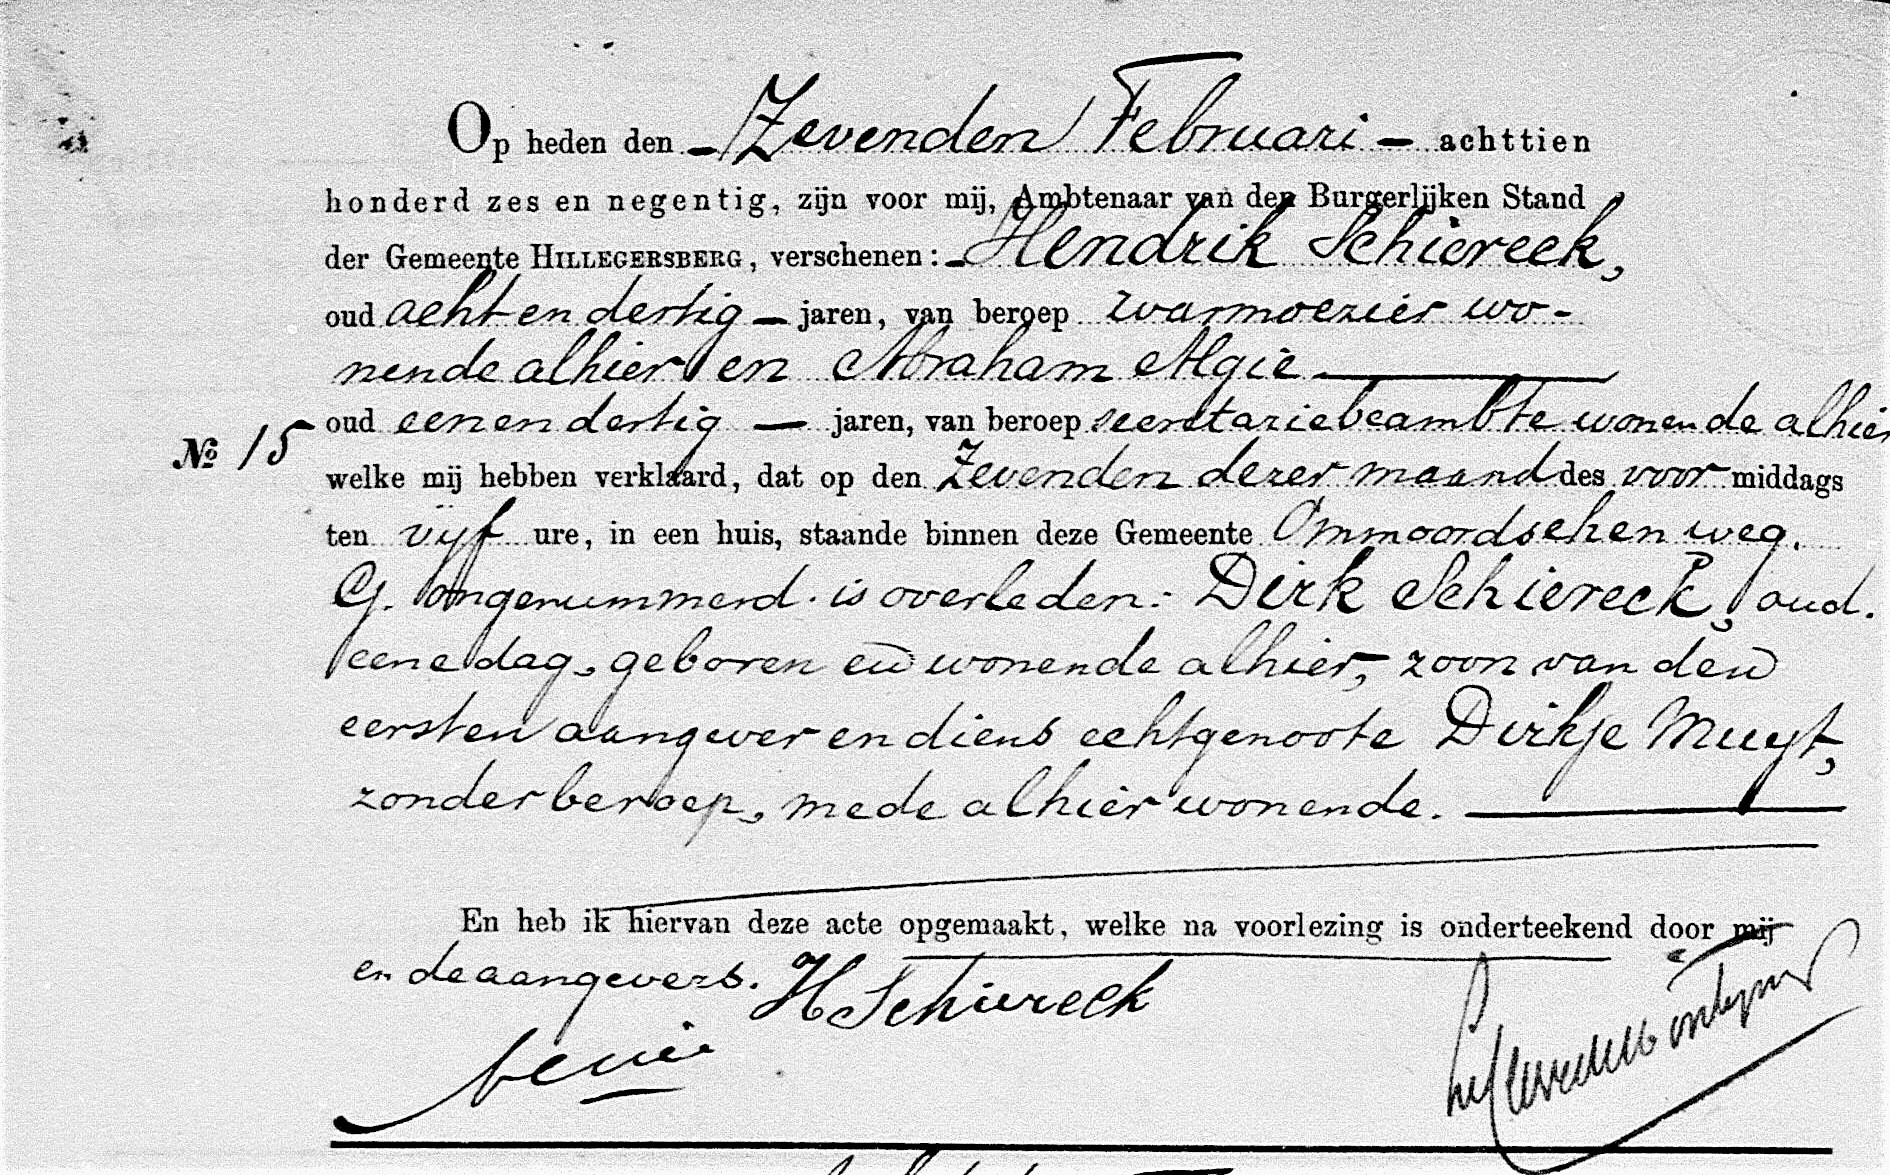 Op heden den Zevenden Februari achttien
honderd zes en negentig, zijn voor mij, Ambtenaar van den Burgerlijken Stand
der Gemeente HILLEGERSBERG, verschenen: Hendrik Schiereck,
oud acht en dertig jaren, van beroep warmoezier wo-
nende alhier en Abraham Algie
oud een en dertig jaren, van beroep secretariebeambte wonende alhier
№ 15
welke mij hebben verklaard, dat op den Zevenden dezer maand des voor middags
ten vijf ure, in een huis, staande binnen deze Gemeente Ommoordschen weg.
G. ongenummerd. is overleden: Dirk Schiereck, oud.
eene dag, geboren en wonende alhier, zoon van den
eersten aangever en diens echtgenoote Dirkje Muyt,
zonder beroep, mede alhier wonende.
En heb ik hiervan deze acte opgemaakt, welke na voorlezing is onderteekend door mij
en de aangevers. H Schiereck